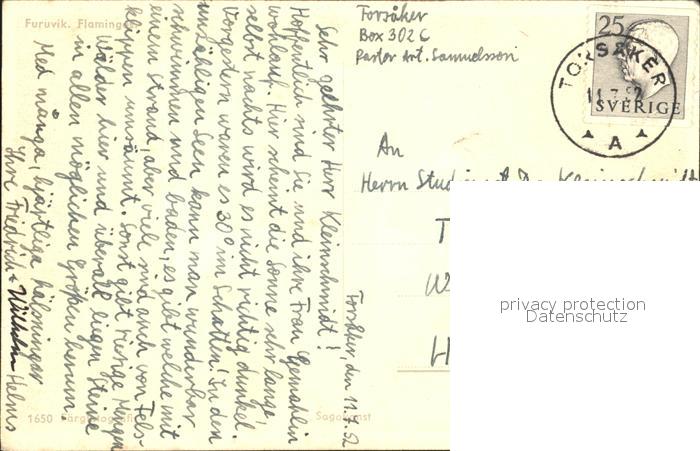 Furuvik. Flamingo
Torsåker
Box 302 C
Pastor Art. Samuelsson
25
SVERIGE
TORSÅKER
11.7.52
A
An
Herrn
T
W
H
privacy protection
Datenschutz
Torsåker, den 11.7.52
Sehr geehrter Herr Kleinschmidt!
Hoffentlich sind Sie und ihre Frau Gemahlin
wohlauf. Hier scheint die Sonne sehr lange,
selbst nachts wird es nicht richtig dunkel.
Vorgestern waren es 30° im Schatten! In den
unzähligen Seen kann man wunderbar
schwimmen und baden, es gibt welche mit
einem Strand, aber viele sind auch von Fels-
klippen umsäumt. Sonst gibt riesige Mengen
Wälder hier und überall liegen Steine
in allen möglichen Größen herum.
Med många, hjärtliga hälsningar
Ihre Friedrich + Wilhelm Helms
1650 Färgfotografi
Sagokonst